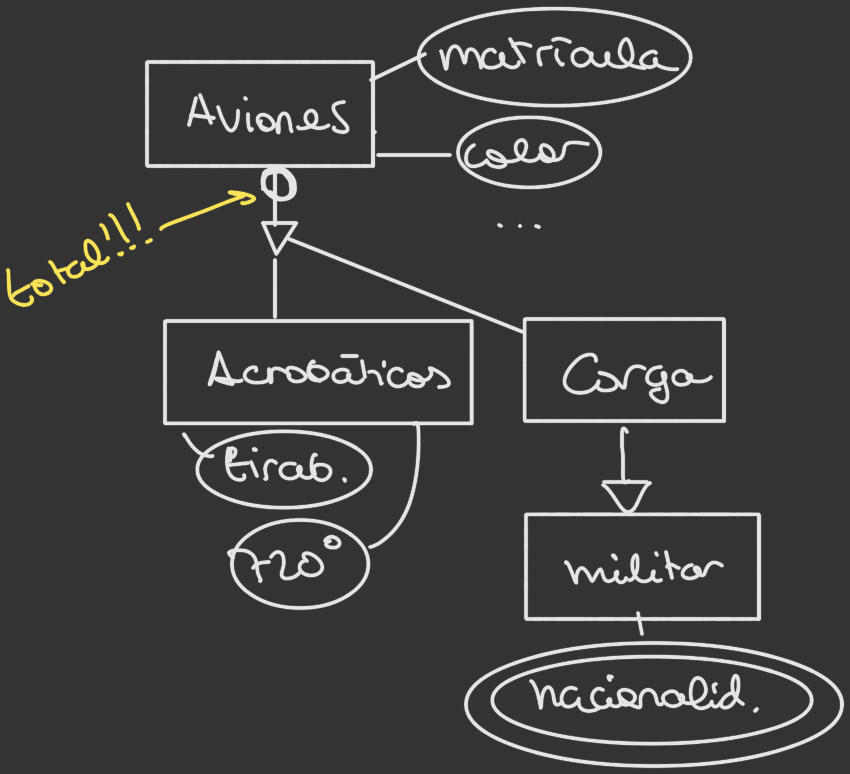 matrícula
Aviones
color
...
total!!!
Acrobáticos
Carga
tirab.
720°
militar
nacionalid.